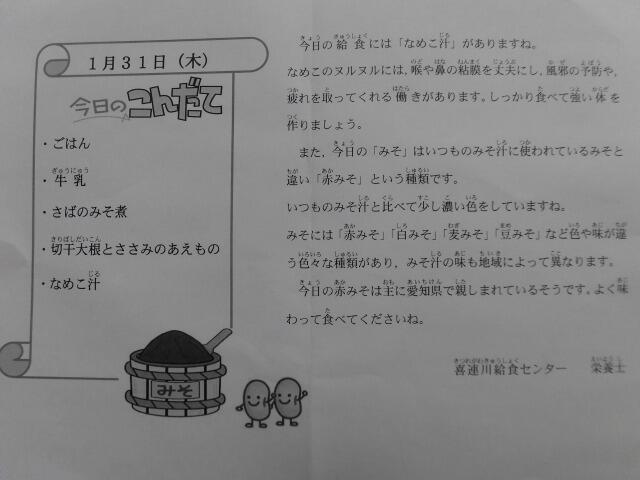 1月31日（木）
今日のこんだて
・ごはん
・牛乳
・さばのみそ煮
・切干大根とささみのあえもの
・なめこ汁
みそ
今日の給食には「なめこ汁」がありますね。
なめこのヌルヌルには,喉や鼻の粘膜を丈夫にし,風邪の予防や,
疲れを取ってくれる働きがあります。しっかり食べて強い体を
作りましょう。
また,今日の「みそ」はいつものみそ汁に使われているみそと
違い「赤みそ」という種類です。
いつものみそ汁と比べて少し濃い色をしていますね。
みそには「赤みそ」「白みそ」「麦みそ」「豆みそ」など色や味が違
う色々な種類があり,みそ汁の味も地域によって異なります。
今日の赤みそは主に愛知県で親しまれているそうです。よく味
わって食べてくださいね。
喜連川給食センター　栄養士